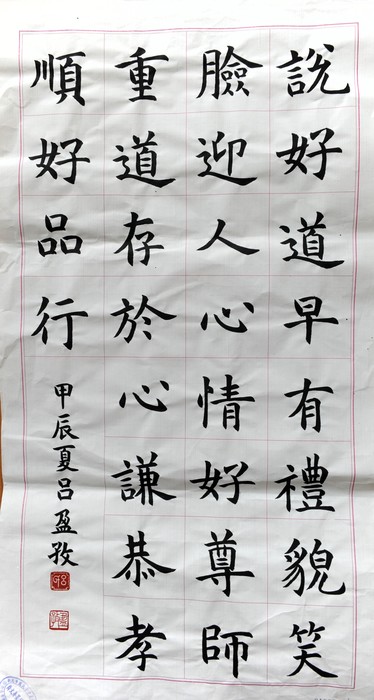 說好道早有禮貌笑
臉迎人心情好尊師
重道存於心謙恭孝
順好品行
甲辰夏吕盈孜